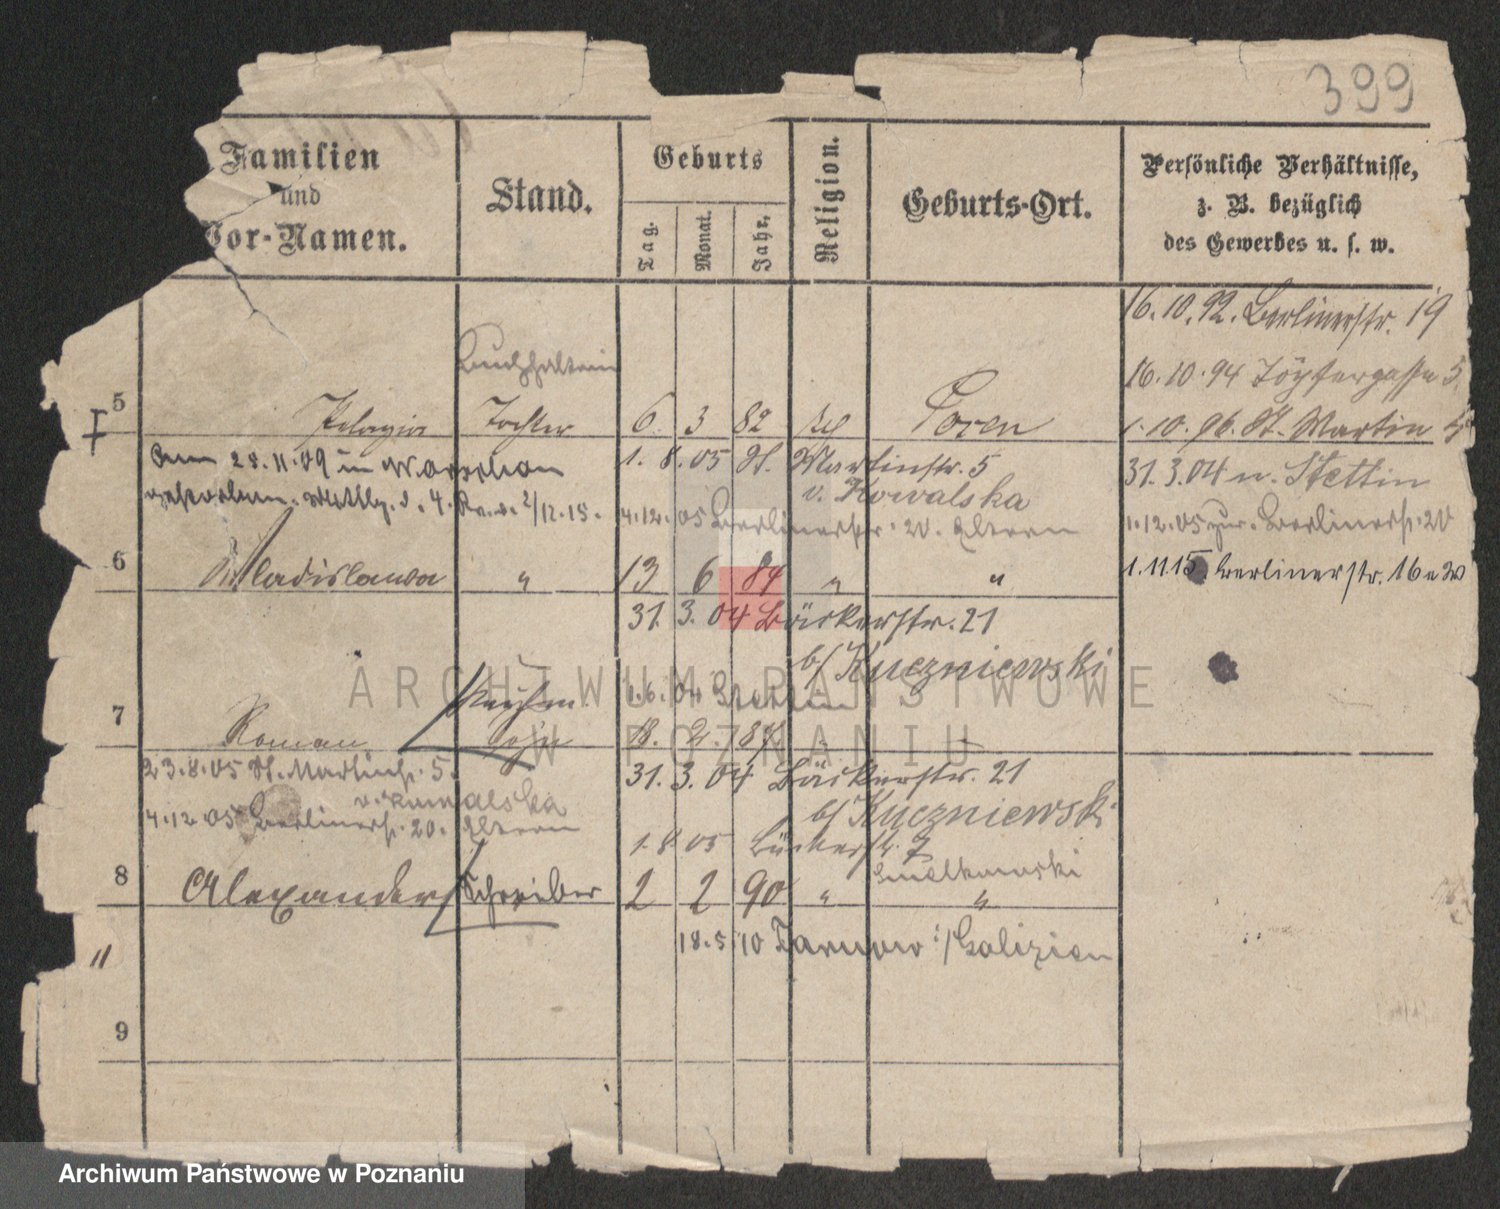 399
Familien
und
Vor-Namen.
Stand.
Geburts
Tag.
Monat.
Jahr.
Religion.
Geburts-Ort.
Persönliche Verhältnisse,
z. B. bezüglich
des Gewerbes u. s. w.
16.10.92. Berlinerstr. 19
Buchhalterin
16.10.94 Töpfergasse 5.
5 Pelagia Tochter 6. 3 82 Posen
1.10.96. St. Martin
am 28.11.09 in Warschau 1.8.05 St. Martinstr. 5
31.3.04 n. Stettin
gestorben. 4. 2/12.15.
v. Kowalska
4.12.05 Berlinerstr. 20. Eltern
1.12.05 zur. Berlinerstr. 20
6 Wladislawa " 13 6 84 " "
1.11.15. Berlinerstr. 16
31.3.04 Bäckerstr. 21
b/ Kuczniewski
Kaufm. 1.6.04 Stettin
7 Roman Sohn 18. 2. 87
23.8.05 St. Martinstr. 5. 31.3.04 Bäckerstr. 21
v. Kowalska b/ Kuczniewski
4.12.05 Berlinerstr. 20. Eltern
1.8.05 Bäckerstr. 7
8 Alexander Schreiber 2 2 90 " "
18.5.10 Tarnow i/Galizien
11
9
ARCHIWUM PAŃSTWOWE
W POZNANIU
Archiwum Państwowe w Poznaniu